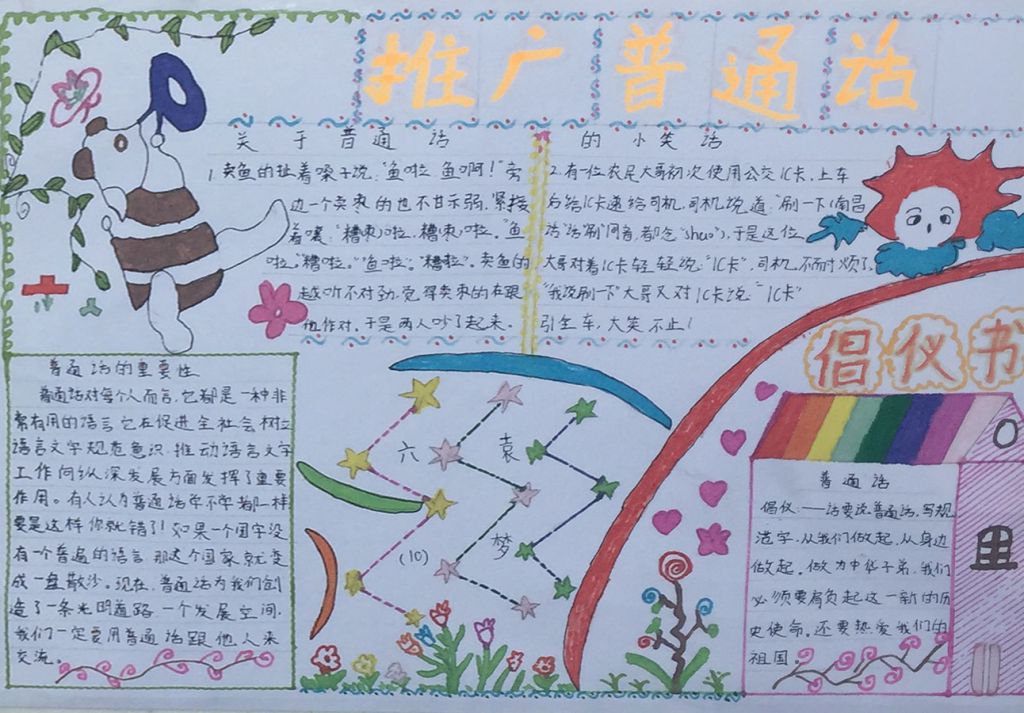 推广普通话
关于普通话的小笑话
1.卖鱼的扯着嗓子说:"鱼啦 鱼啊!"旁
边一个卖枣的也不甘示弱,紧接
着嚷:"糟枣啦,糟枣啦。"鱼
啦。"糟啦。""鱼啦。"糟啦"。卖鱼的
越听不对劲,觉得卖枣的在跟
他作对。于是两人吵了起来。
2.有一位农民大哥初次使用公交IC卡,上车
后给IC卡递给司机,司机说道:"刷一下(南昌
话"话"刷"同音,都念"shuo"),于是这位
大哥对着IC卡轻轻说:"IC卡",司机不耐烦了,
"我说刷一下"大哥又对IC卡说:"IC卡"
引全车,大笑不止!
普通话的重要性
普通话对每个人而言,它都是一种非
常有用的语言它在促进全社会树立
语言文字规范意识,推动语言文字
工作向纵深发展方面发挥了重要
作用。有人认为普通话学不学都一样
要是这样你就错了!如果一个国家没
有一个普遍的语言,那这个国家就变
成一盘散沙。现在,普通话为我们创
造了一条光明道路,一个发展空间,
我们一定要用普通话跟他人来
交流。
六
(10)
袁
梦
倡仪书
普通话
倡仪:——话要说普通话,写规
范字,从我们做起,从身边
做起。做为中华子弟,我们
必须要肩负起这一新的历
史使命。还要热爱我们的
祖国。